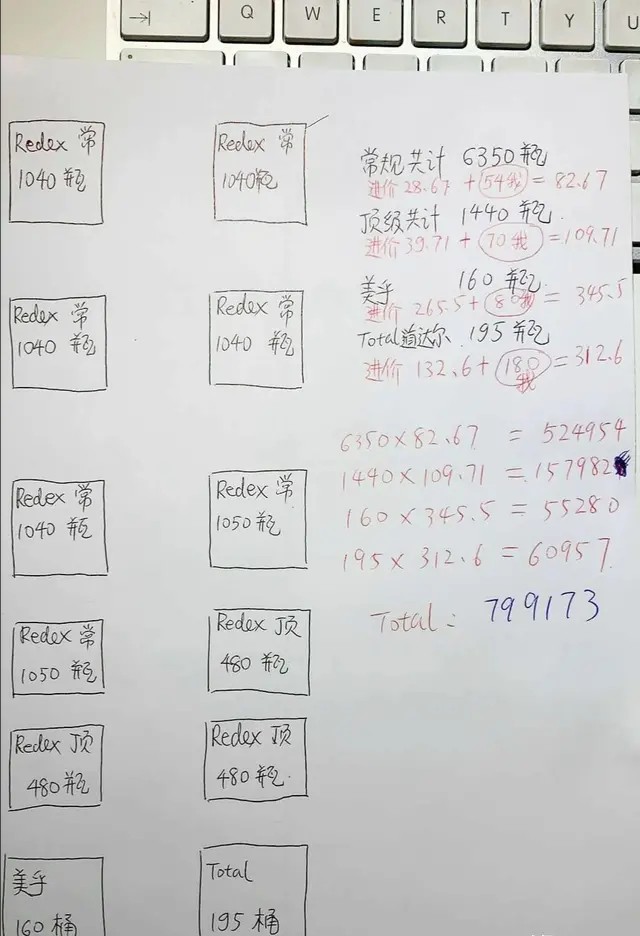 Q W E R T Y U
Redex 常
1040 瓶
Redex 常
1040瓶
Redex 常
1040 瓶
Redex 常
1040 瓶
Redex 常
1040 瓶
Redex 常
1050 瓶
Redex 常
1050 瓶
Redex 顶
480 瓶
Redex 顶
480 瓶
Redex 顶
480 瓶.
美孚
160 桶
Total
195 桶
常规共计 6350 瓶
进价 28.67 + 54我 = 82.67
顶级共计 1440 瓶.
进价 39.71 + 70 我 = 109.71
美孚 160 瓶.
进价 265.5 + 80我 = 345.5
Total道达尔 195 瓶
进价 132.6 + 180我 = 312.6
6350 × 82.67 = 524954
1440 × 109.71 = 157982
160 × 345.5 = 55280
195 × 312.6 = 60957.
Total: 799173